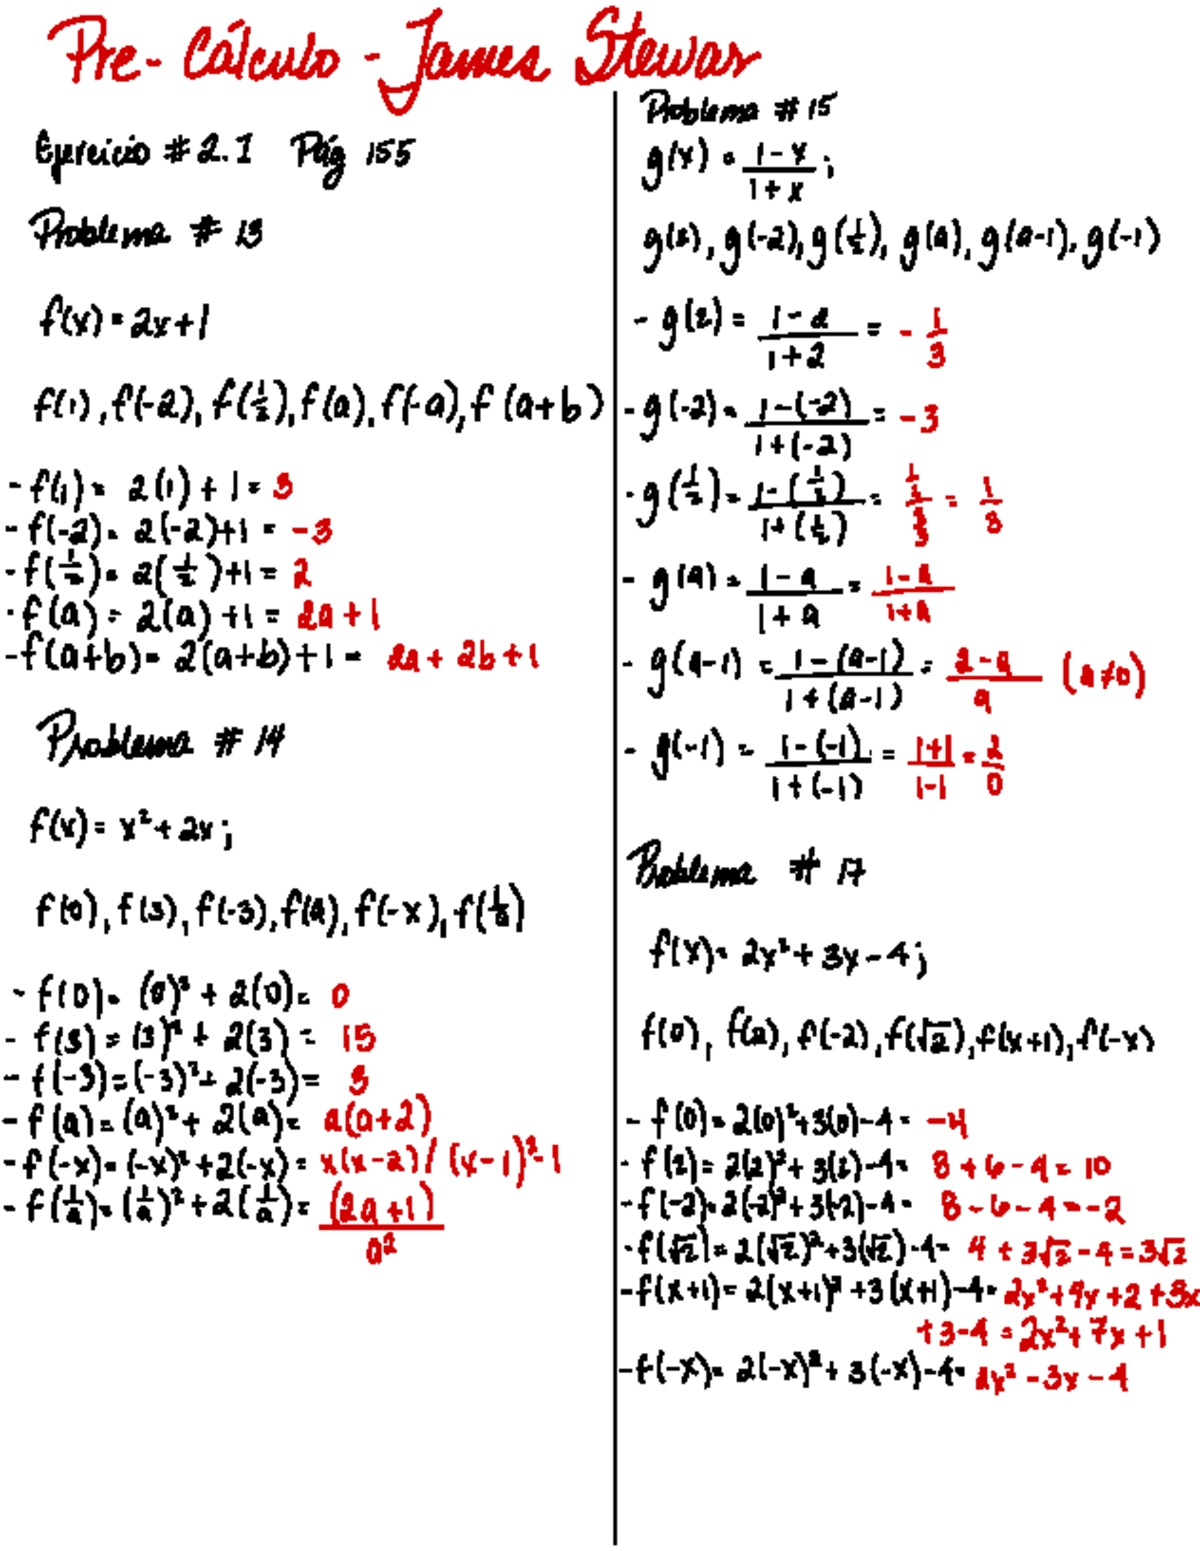 Pre-Cálculo - James Stewar
Ejercicio #2.1 Pág 155
Problema # 13
f(x) = 2x+1
f(1), f(-2), f(1/2), f(a), f(-a), f(a+b)
- f(1) = 2(1) + 1 = 3
- f(-2) = 2(-2)+1 = -3
- f(1/2) = 2(1/2)+1 = 2
- f(a) = 2(a) +1 = 2a+1
- f(a+b) = 2(a+b)+1 = 2a + 2b + 1
Problema # 14
f(x) = x²+2x;
f(0), f(3), f(-3), f(a), f(-x), f(1/a)
- f(0) = (0)² + 2(0) = 0
- f(3) = (3)² + 2(3) = 15
- f(-3) = (-3)² + 2(-3) = 3
- f(a) = (a)² + 2(a) = a(a+2)
- f(-x) = (-x)² + 2(-x) = x(x-2) / (x-1)²-1
- f(1/a) = (1/a)² + 2(1/a) = (2a+1)/a²
Problema # 15
g(x) = 1-x/1+x ;
g(2), g(-2), g(1/2), g(a), g(a-1), g(-1)
- g(2) = 1-2/1+2 = - 1/3
- g(-2) = 1-(-2)/1+(-2) = -3
- g(1/2) = 1-(1/2)/1+(1/2) = 1/2/3/2 = 1/3
- g(a) = 1-a/1+a = 1-a/1+a
- g(a-1) = 1-(a-1)/1+(a-1) = 2-a/a (a≠0)
- g(-1) = 1-(-1)/1+(-1) = 1+1/1-1 = 2/0
Problema # 17
f(x) = 2x²+3x-4;
f(0), f(2), f(-2), f(√2), f(x+1), f(-x)
- f(0) = 2(0)²+3(0)-4 = -4
- f(2) = 2(2)²+3(2)-4 = 8+6-4 = 10
- f(-2) = 2(-2)²+3(-2)-4 = 8-6-4 = -2
- f(√2) = 2(√2)²+3(√2)-4 = 4+3√2-4 = 3√2
- f(x+1) = 2(x+1)²+3(x+1)-4 = 2x²+4x+2+3x
+3-4 = 2x²+7x+1
- f(-x) = 2(-x)²+3(-x)-4 = 2x²-3x-4